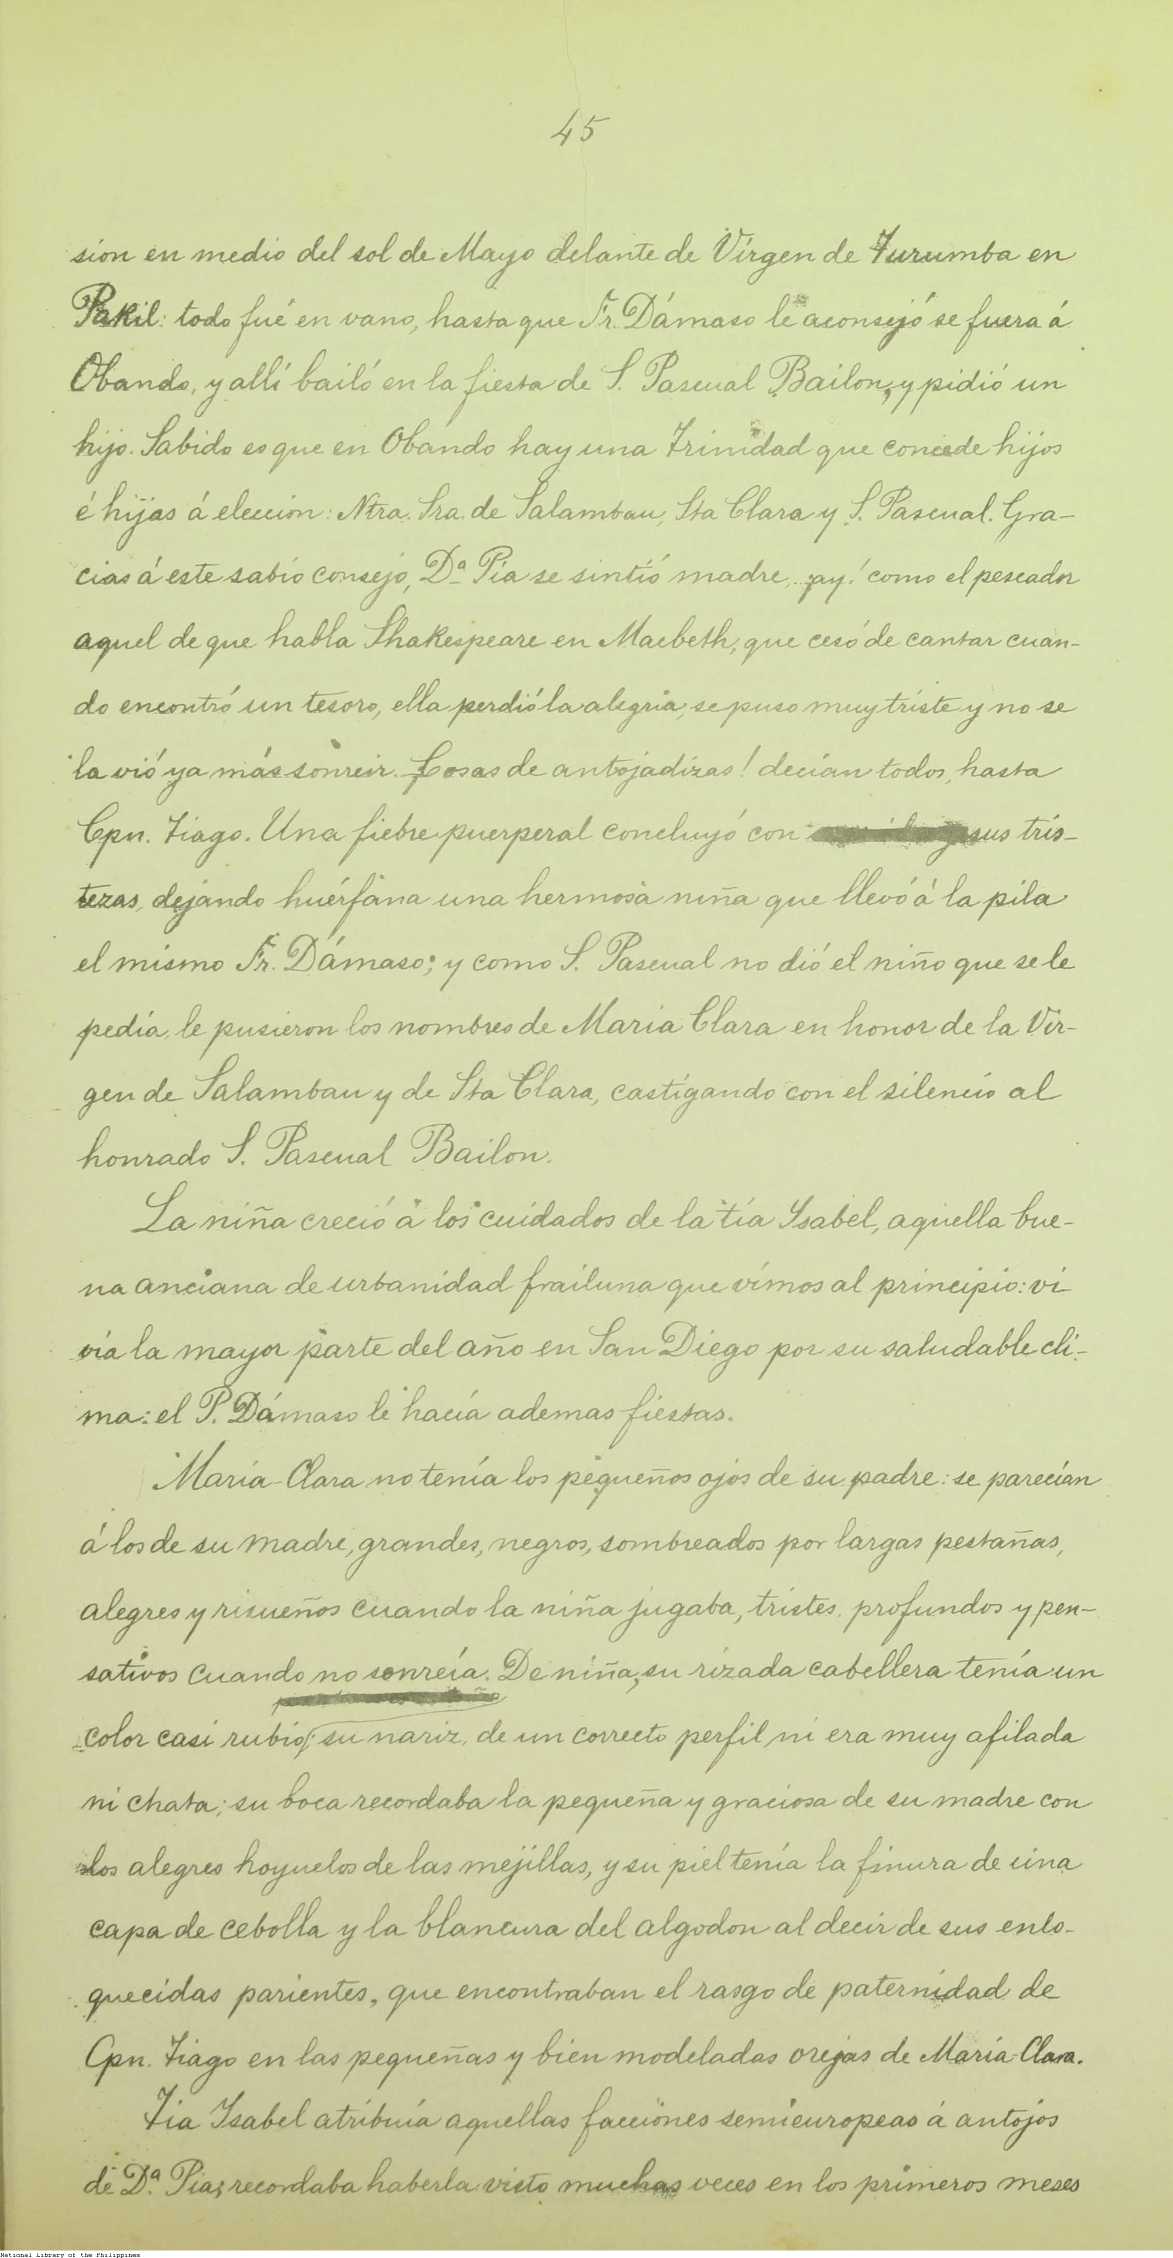 45
sion en medio del sol de Mayo delante de Vírgen de Turumba en
Pakil: todo fué en vano, hasta que Fr. Dámaso le aconsejó se fuera á
Obando, y allí bailó en la fiesta de S. Pascual Bailon, y pidió un
hijo. Sabido es que en Obando hay una Trinidad que concede hijos
é hijas á eleccion: Ntra. Sra. de Salambau, Sta Clara y S. Pascual. Gra-
cias á este sabio consejo, Dª Pia se sintió madre, ¡ay! como el pescador
aquel de que habla Shakespeare en Macbeth, que cesó de cantar cuan-
do encontró un tesoro, ella perdió la alegría, se puso muy triste y no se
la vió ya más sonreir. ¡Cosas de antojadizas! decían todos, hasta
Cpn. Tiago. Una fiebre puerperal concluyó con sus tris-
tezas, dejando huérfana una hermosa niña que llevó á la pila
el mismo Fr. Dámaso; y como S. Pascual no dió el niño que se le
pedía, le pusieron los nombres de Maria Clara en honor de la Vir-
gen de Salambau y de Sta Clara, castigando con el silencio al
honrado S. Pascual Bailon.
La niña creció á los cuidados de la tia Ysabel, aquella bue-
na anciana de urbanidad frailuna que vímos al principio: vi
vía la mayor parte del año en San Diego por su saludable cli-
ma: el P. Dámaso le hacía ademas fiestas.
María-Clara no tenía los pequeños ojos de su padre: se parecían
á los de su madre, grandes, negros, sombreados por largas pestañas,
alegres y risueños cuando la niña jugaba, tristes, profundos y pen-
sativos cuando no sonreía. De niña, su rizada cabellera tenía un
color casi rubio; su nariz, de un correcto perfil, ni era muy afilada
ni chata; su boca recordaba la pequeña y graciosa de su madre con
los alegres hoyuelos de las mejillas, y su piel tenía la finura de una
capa de cebolla y la blancura del algodon al decir de sus enlo-
quecidas parientes, que encontraban el rasgo de paternidad de
Cpn. Tiago en las pequeñas y bien modeladas orejas de María-Clara.
Tia Ysabel atribuía aquellas facciones semieuropeas á antojos
de Dª. Pia; recordaba haberla visto muchas veces en los primeros meses
National Library of the Philippines